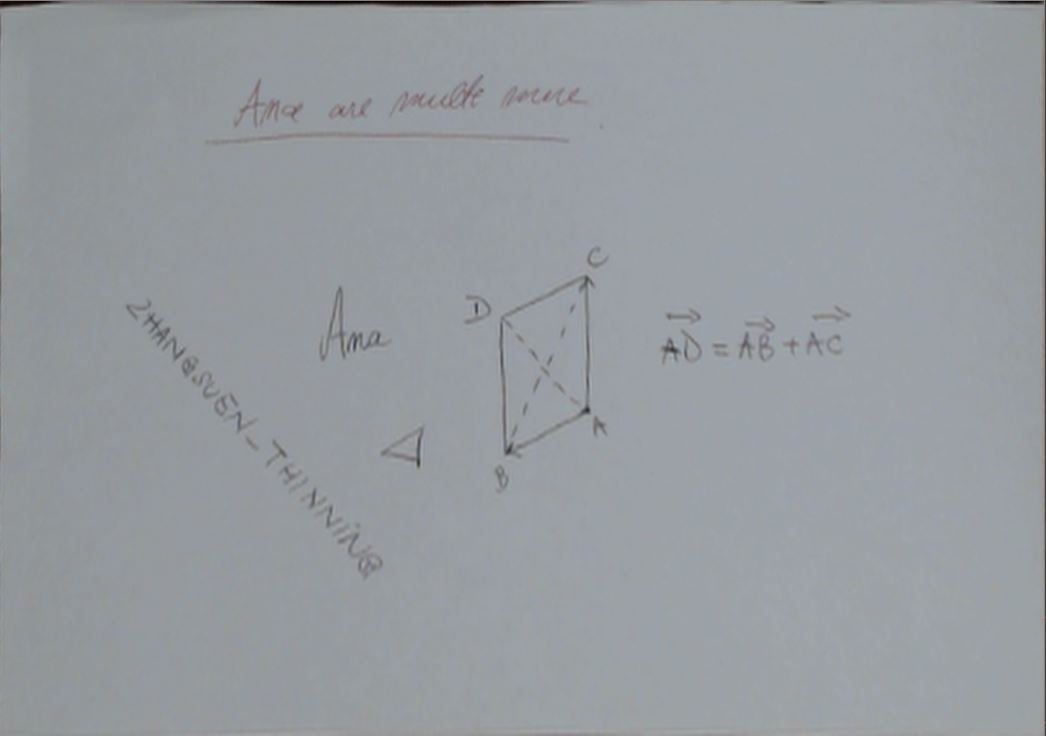 Ana are multe mere
Ana
ZHANGSUEN_THINNING
D
C
B
A
AD = AB + AC